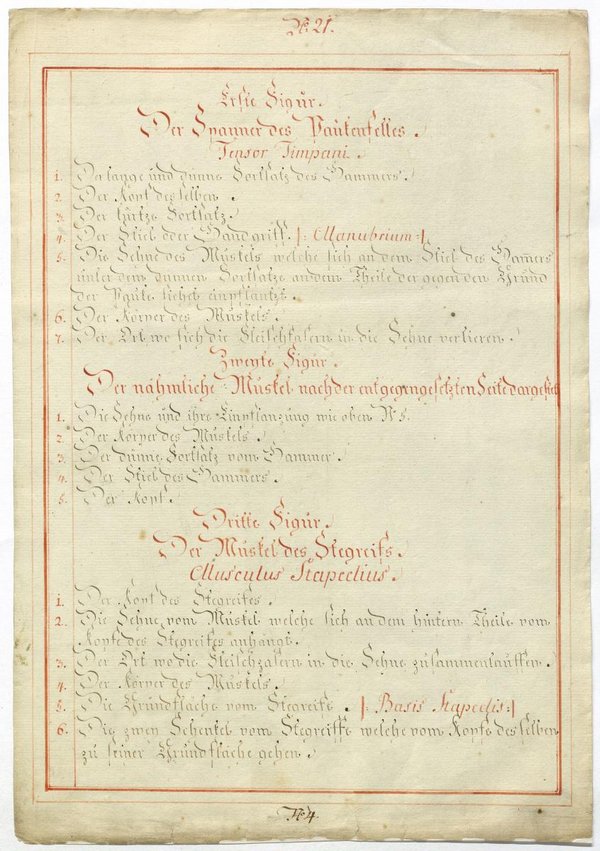 No. 21.
Erste Figur.
Der Spanner des Paukenfelles.
Tensor Timpani.
1. Der lange und dunne Fortsatz des Hammers.
2. Der Kopf desselben.
3. Der kurtze Fortsatz.
4. Der Stiel oder Handgriff. |: Manubrium :|
5. Die Sehne des Muskels welche sich an dem Stiel des Hamers
unter dem dunnen Fortsatze an dem Theile der gegen den Grund
der Pauke siehet einpflantzt.
6. Der Körper des Muskels.
7. Der Ort wo sich die Fleischfasern in die Sehne verlieren.
Zweyte Figur.
Der nähmliche Muskel nach der entgegengesetzten Seite dargestelt
1. Die Sehne und ihre Einpflanzung wie oben No 5.
2. Der Körper des Muskels.
3. Der dunne Fortsatz vom Hammer.
4. Der Stiel des Hammers.
5. Der Kopf.
Dritte Figur.
Der Muskel des Stegreifs.
Musculus Stapedius.
1. Der Kopf des Stegreifes.
2. Die Sehne vom Muskel welche sich an dem hintern Theile vom
Kopfe des Stegreifes anhängt.
3. Der Ort wo die Fleischzasern in die Sehne zusammenlauffen.
4. Der Körper des Muskels.
5. Die Grundfläche vom Stegreife. |: Basis Stapedis :|
6. Die zwey Schenkel vom Stegreiffe welche vom Kopfe desselben
zu seiner Grundfläche gehen.
No 4.